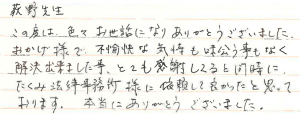 荻野先生
この度は、色々お世話になりありがとうございました。
おかげ様で、不愉快な気持も味会う事もなく
解決出来ました事、とても感謝してると同時に、
たくみ法律事務所様に依頼して良かったと思って
おります。本当にありがとうございました。